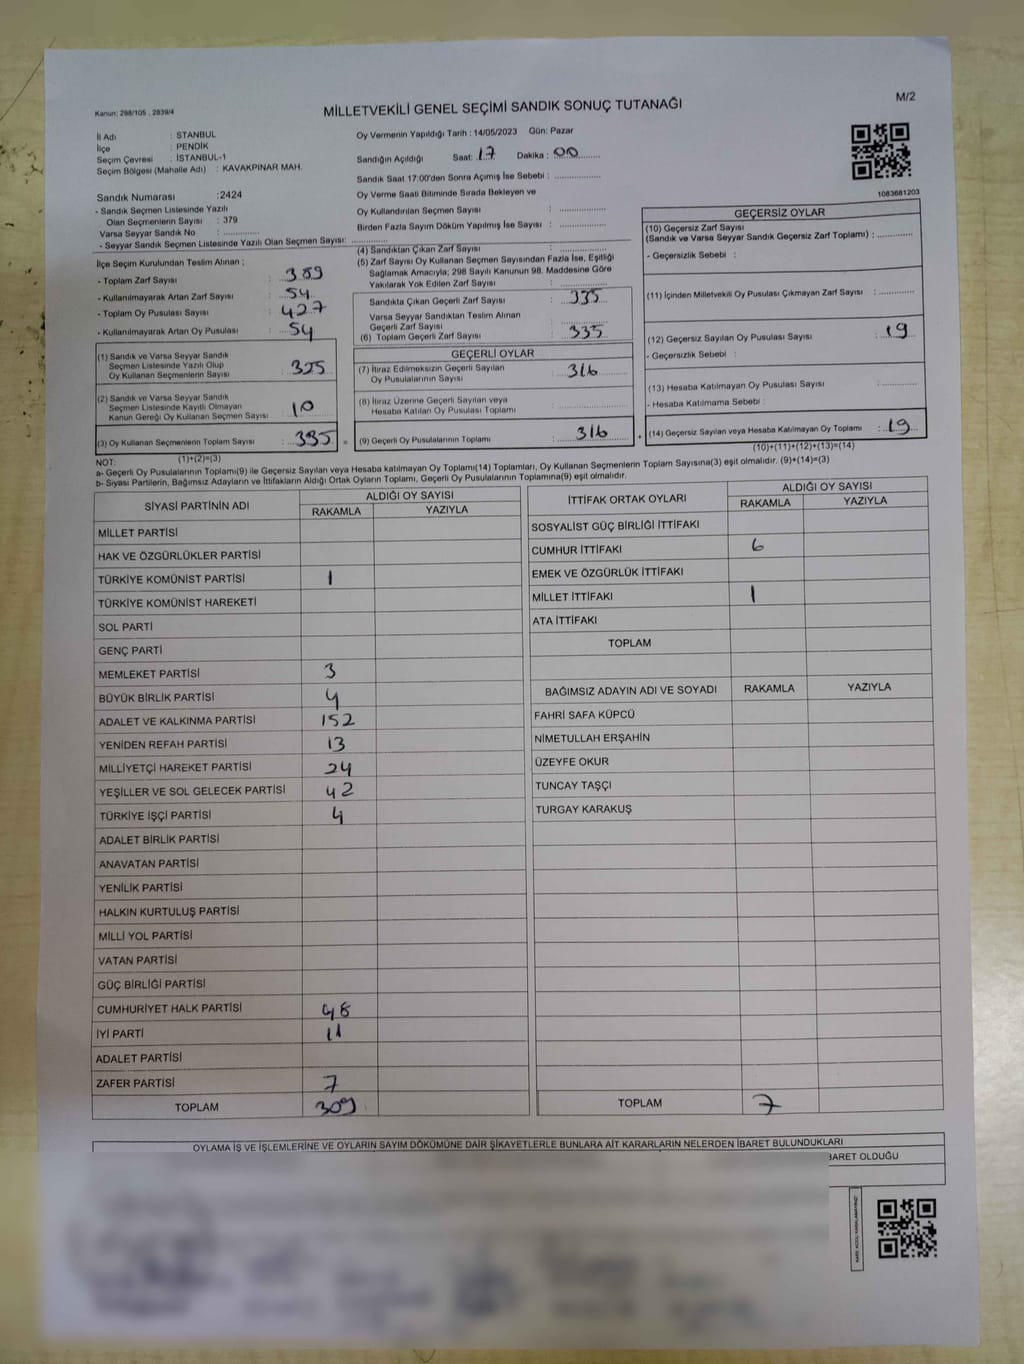 M/2
Kanun: 298/105 , 2839/4
MİLLETVEKİLİ GENEL SEÇİMİ SANDIK SONUÇ TUTANAĞI
İl Adı : İSTANBUL
İlçe : PENDİK
Seçim Çevresi : İSTANBUL-1
Seçim Bölgesi (Mahalle Adı) : KAVAKPINAR MAH.
Sandık Numarası :2424
- Sandık Seçmen Listesinde Yazılı
Olan Seçmenlerin Sayısı : 379
Varsa Seyyar Sandık No : ..............
- Seyyar Sandık Seçmen Listesinde Yazılı Olan Seçmen Sayısı: ..............
Oy Vermenin Yapıldığı Tarih : 14/05/2023 Gün: Pazar
Sandığın Açıldığı Saat: 17 Dakika : 00
Sandık Saat 17:00'den Sonra Açımış İse Sebebi : ..............
Oy Verme Saati Bitiminde Sırada Bekleyen ve
Oy Kullandırılan Seçmen Sayısı : ..............
Birden Fazla Sayım Döküm Yapılmış İse Sayısı : ..............
1083681203
İlçe Seçim Kurulundan Teslim Alınan ;
- Toplam Zarf Sayısı : 389
- Kullanılmayarak Artan Zarf Sayısı : 54
- Toplam Oy Pusulası : 427
- Kullanılmayarak Artan Oy Pusulası : 54
(1) Sandık ve Varsa Seyyar Sandık
Seçmen Listesinde Yazılı Olup
Oy Kullanan Seçmenlerin Sayısı : 325
(2) Sandık ve Varsa Seyyar Sandık
Seçmen Listesinde Kayıtlı Olmayan
Kanun Gereği Oy Kullanan Seçmen Sayısı : 10
(3) Oy Kullanan Seçmenlerin Toplam Sayısı : 335 =
(1)+(2)=(3)
(4) Sandıktan Çıkan Zarf Sayısı : ..............
(5) Zarf Sayısı Oy Kullanan Seçmen Sayısından Fazla İse, Eşitliği
Sağlamak Amacıyla; 298 Sayılı Kanunun 98. Maddesine Göre
Yakılarak Yok Edilen Zarf Sayısı : ..............
Sandıkta Çıkan Geçerli Zarf Sayısı : 335
Varsa Seyyar Sandıktan Teslim Alınan
Geçerli Zarf Sayısı : ..............
(6) Toplam Geçerli Zarf Sayısı : 335
GEÇERLİ OYLAR
(7) İtiraz Edilmeksizin Geçerli Sayılan
Oy Pusulalarının Sayısı : 316
(8) İtiraz Üzerine Geçerli Sayılan veya
Hesaba Katılan Oy Pusulası Toplamı : ..............
(9) Geçerli Oy Pusulalarının Toplamı : 316 +
GEÇERSİZ OYLAR
(10) Geçersiz Zarf Sayısı
(Sandık ve Varsa Seyyar Sandık Geçersiz Zarf Toplamı) : ..............
- Geçersizlik Sebebi :
(11) İçinden Milletvekili Oy Pusulası Çıkmayan Zarf Sayısı : ..............
(12) Geçersiz Sayılan Oy Pusulası Sayısı : 19
- Geçersizlik Sebebi :
(13) Hesaba Katılmayan Oy Pusulası Sayısı : ..............
- Hesaba Katılmama Sebebi :
(14) Geçersiz Sayılan veya Hesaba Katılmayan Oy Toplamı : 19
(10)+(11)+(12)+(13)=(14)
NOT:
a- Geçerli Oy Pusulalarının Toplamı(9) ile Geçersiz Sayılan veya Hesaba katılmayan Oy Toplamı(14) Toplamları, Oy Kullanan Seçmenlerin Toplam Sayısına(3) eşit olmalıdır. (9)+(14)=(3)
b- Siyasi Partilerin, Bağımsız Adayların ve İttifakların Aldığı Ortak Oyların Toplamı, Geçerli Oy Pusulalarının Toplamına(9) eşit olmalıdır.
SİYASİ PARTİNİN ADI ALDIĞI OY SAYISI
RAKAMLA YAZIYLA
MİLLET PARTİSİ
HAK VE ÖZGÜRLÜKLER PARTİSİ
TÜRKİYE KOMÜNİST PARTİSİ 1
TÜRKİYE KOMÜNİST HAREKETİ
SOL PARTİ
GENÇ PARTİ
MEMLEKET PARTİSİ 3
BÜYÜK BİRLİK PARTİSİ 4
ADALET VE KALKINMA PARTİSİ 152
YENİDEN REFAH PARTİSİ 13
MİLLİYETÇİ HAREKET PARTİSİ 24
YEŞİLLER VE SOL GELECEK PARTİSİ 42
TÜRKİYE İŞÇİ PARTİSİ 4
ADALET BİRLİK PARTİSİ
ANAVATAN PARTİSİ
YENİLİK PARTİSİ
HALKIN KURTULUŞ PARTİSİ
MİLLİ YOL PARTİSİ
VATAN PARTİSİ
GÜÇ BİRLİĞİ PARTİSİ
CUMHURİYET HALK PARTİSİ 48
İYİ PARTİ 11
ADALET PARTİSİ
ZAFER PARTİSİ 7
TOPLAM 309
İTTİFAK ORTAK OYLARI ALDIĞI OY SAYISI
RAKAMLA YAZIYLA
SOSYALİST GÜÇ BİRLİĞİ İTTİFAKI
CUMHUR İTTİFAKI 6
EMEK VE ÖZGÜRLÜK İTTİFAKI
MİLLET İTTİFAKI 1
ATA İTTİFAKI
TOPLAM
BAĞIMSIZ ADAYIN ADI VE SOYADI RAKAMLA YAZIYLA
FAHRİ SAFA KÜPCÜ
NİMETULLAH ERŞAHİN
ÜZEYFE OKUR
TUNCAY TAŞÇI
TURGAY KARAKUŞ
TOPLAM 7
OYLAMA İŞ VE İŞLEMLERİNE VE OYLARIN SAYIM DÖKÜMÜNE DAİR ŞİKAYETLERLE BUNLARA AİT KARARLARIN NELERDEN İBARET BULUNDUKLARI
BARET OLDUĞU